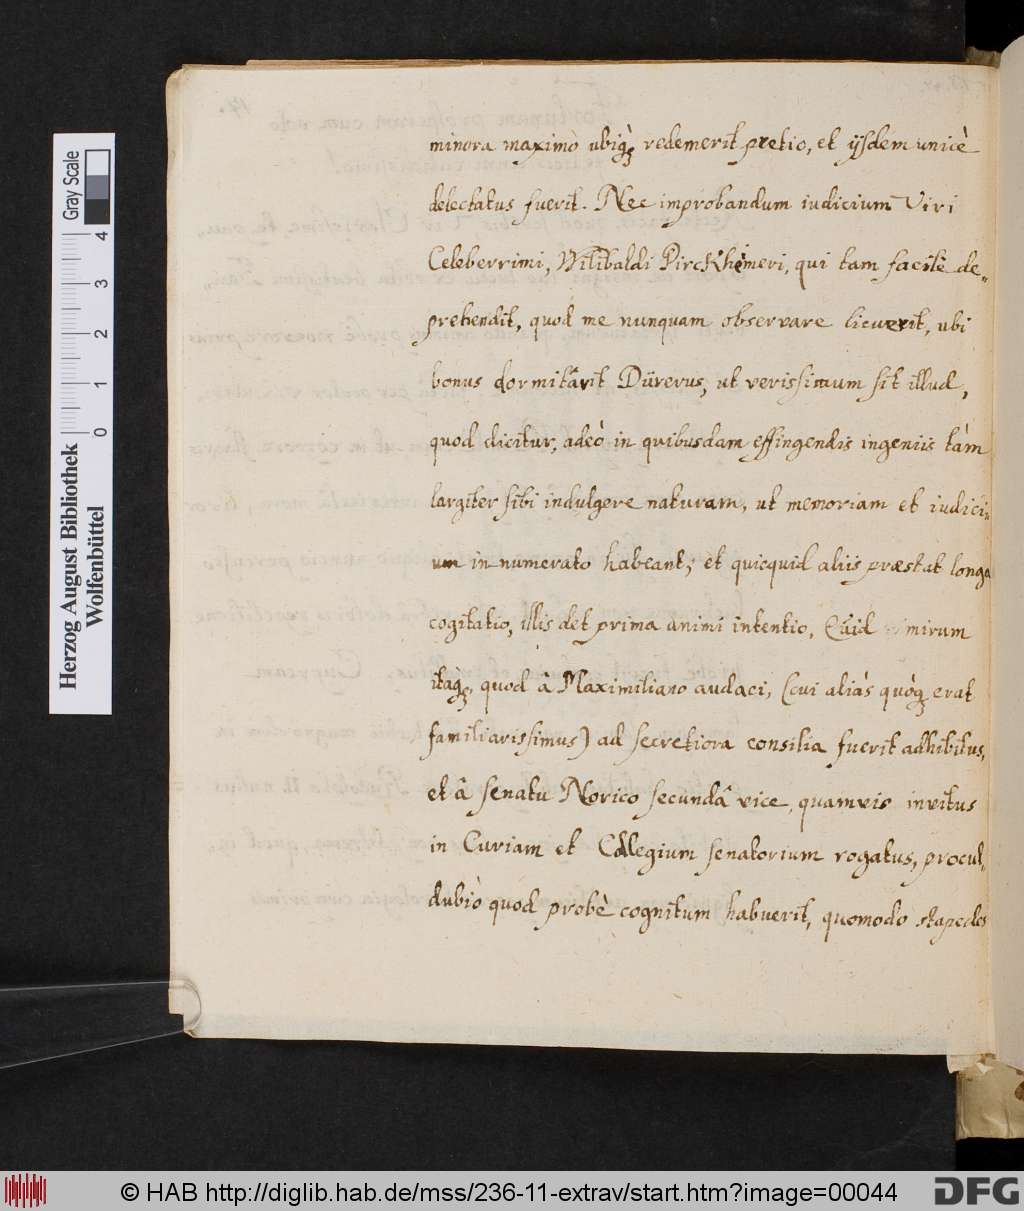 minora maximo ubiq; redemerit pretio, et ijsdem unicè
delectatus fuerit. Nec improbandum iudicium Viri
Celeberrimi, Wilibaldi Pirckheimeri, qui tam facilè de-
prehendit, quod me nunquam observare licuerit, ubi
bonus dormitârit Dürerus, ut verissimum sit illud,
quod dicitur, adeò in quibusdam effingendis ingeniis tàm
largiter sibi indulgere naturam, ut memoriam et iudici-
um in numerato habeant, et quicquid aliis præstat longa
cogitatio, illis det prima animi intentio, Quid mirum
itaq;, quod â Maximiliano audaci, (cui aliàs quòq; erat
familiarissimus) ad secretiora consilia fuerit adhibitus,
et â senatu Norico secundâ vice, quamvis invitus
in Curiam et Collegium senatorium rogatus, procul-
dubiò quod probè cognitum habuerit, quomodo stapedes
Herzog August Bibliothek
Wolfenbüttel
Gray Scale
0 1 2 3 4
© HAB http://diglib.hab.de/mss/236-11-extrav/start.htm?image=00044
DFG